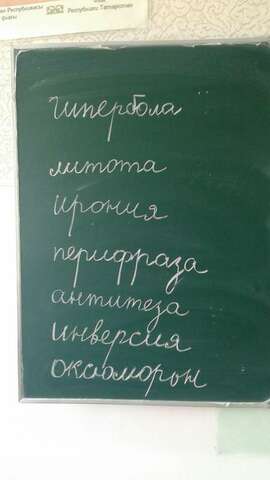 Республикасы
Республики Татарстан
гипербола
литота
ирония
перифраза
антитеза
инверсия
оксюморон